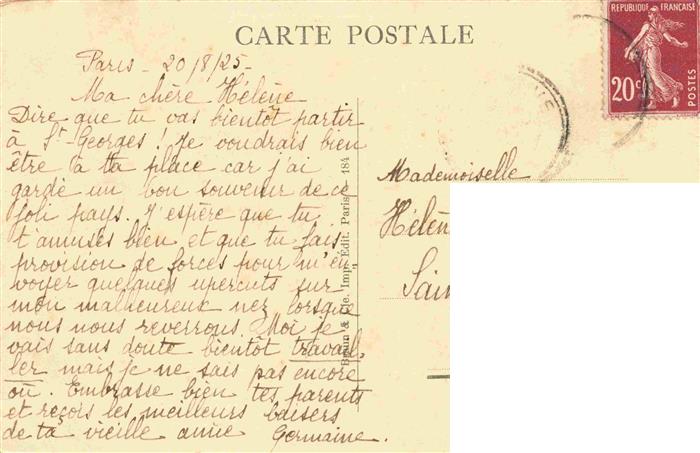 CARTE POSTALE
RÉPUBLIQUE FRANÇAISE
20c
POSTES
Paris - 20/8/25-
Ma chère Hélène
Dire que tu vas bientôt partir
à St Georges ! Je voudrais bien
être à ta place car j'ai
gardé un bon souvenir de ce
joli pays. J'espère que tu
t'amuses bien et que tu fais
provision de forces pour m'en
voyer quelques upercuts sur
mon malheureux nez lorsque
nous nous reverrons. Moi je
vais sans doute bientôt travail-
ler mais je ne sais pas encore
où. Embrasse bien tes parents
et reçois les meilleurs baisers
de ta vieille amie Germaine.
& Cie. Imp. Édit. Paris 184
Mademoiselle
Hélèn
Sain